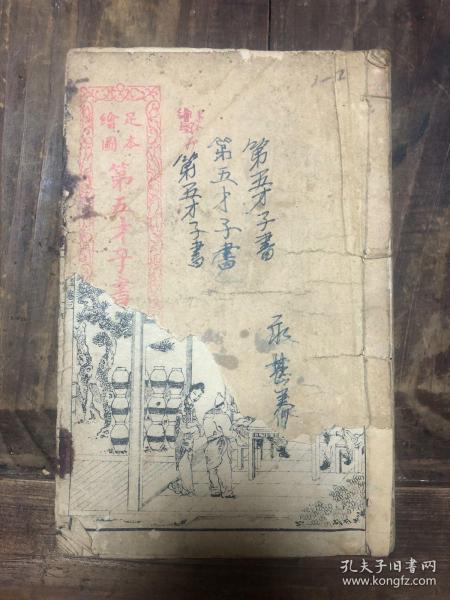 1-2
足本
繪圖
第五才子書
第五才子書
第五才子書
第五才子書
孔夫子旧书网
www.kongfz.com